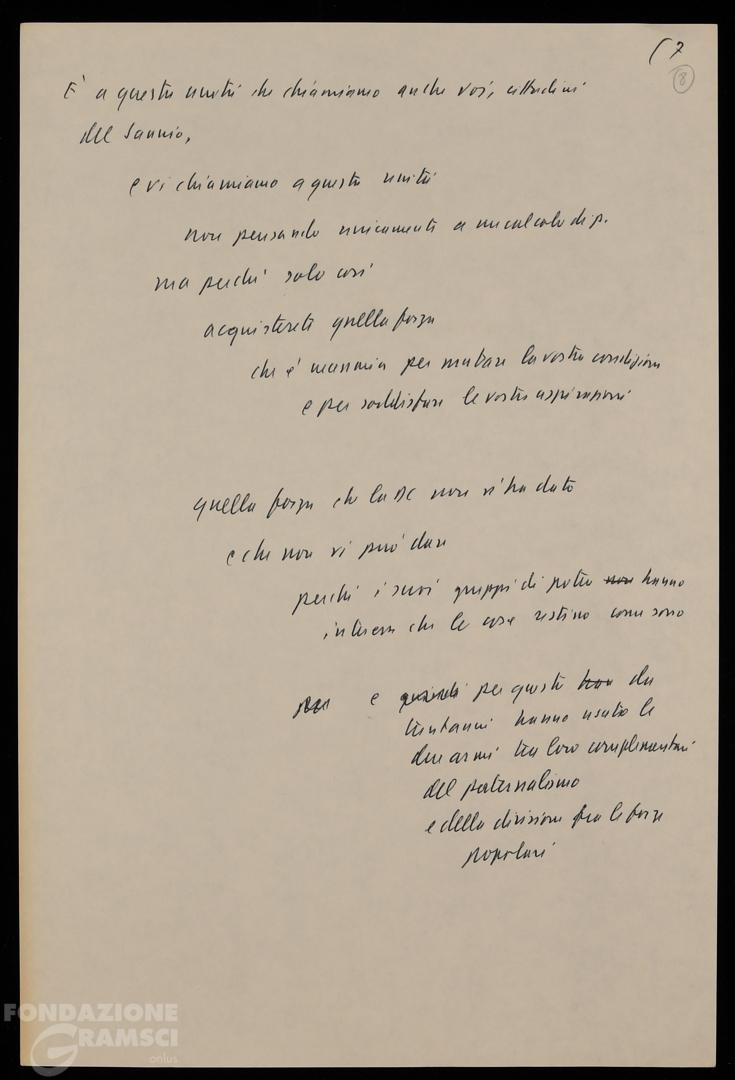 ( 7
8
E' a questa unità che chiamiamo anche voi, cittadini
del Sannio,
e vi chiamiamo a questa unità
non pensando unicamente a un calcolo di p.
ma perché solo così
acquisterete quella forza
che è necessaria per mutare la vostra condizione
e per soddisfare le vostre aspirazioni
quella forza che la DC non vi ha dato
e che non vi può dare
perché i suoi gruppi di potere non hanno
interesse che le cose restino come sono
e quindi per questo han da
trent'anni hanno usato le
due armi tra loro complementari
del paternalismo
e della divisione fra le forze
popolari
FONDAZIONE
GRAMSCI
onlus